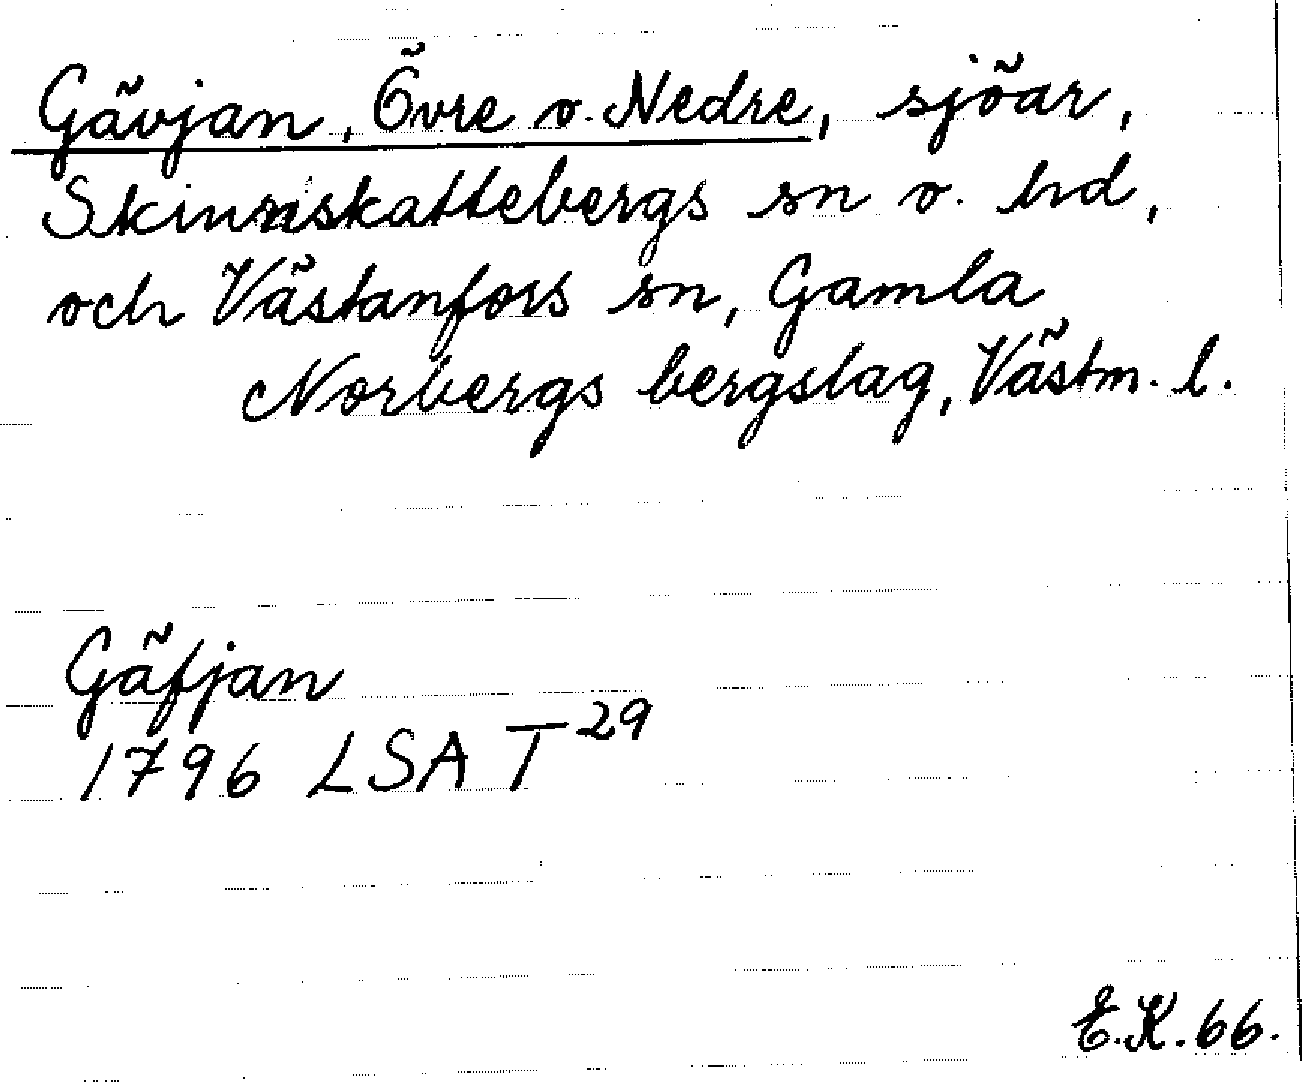 Gävjan, Övre o. Nedre, sjöar,
Skinnskattebergs sn o. hd,
och Västanfors sn, Gamla
Norbergs bergslag, Västm. l.
Gäfjan
1796 LSA T 29
E.K. 66.